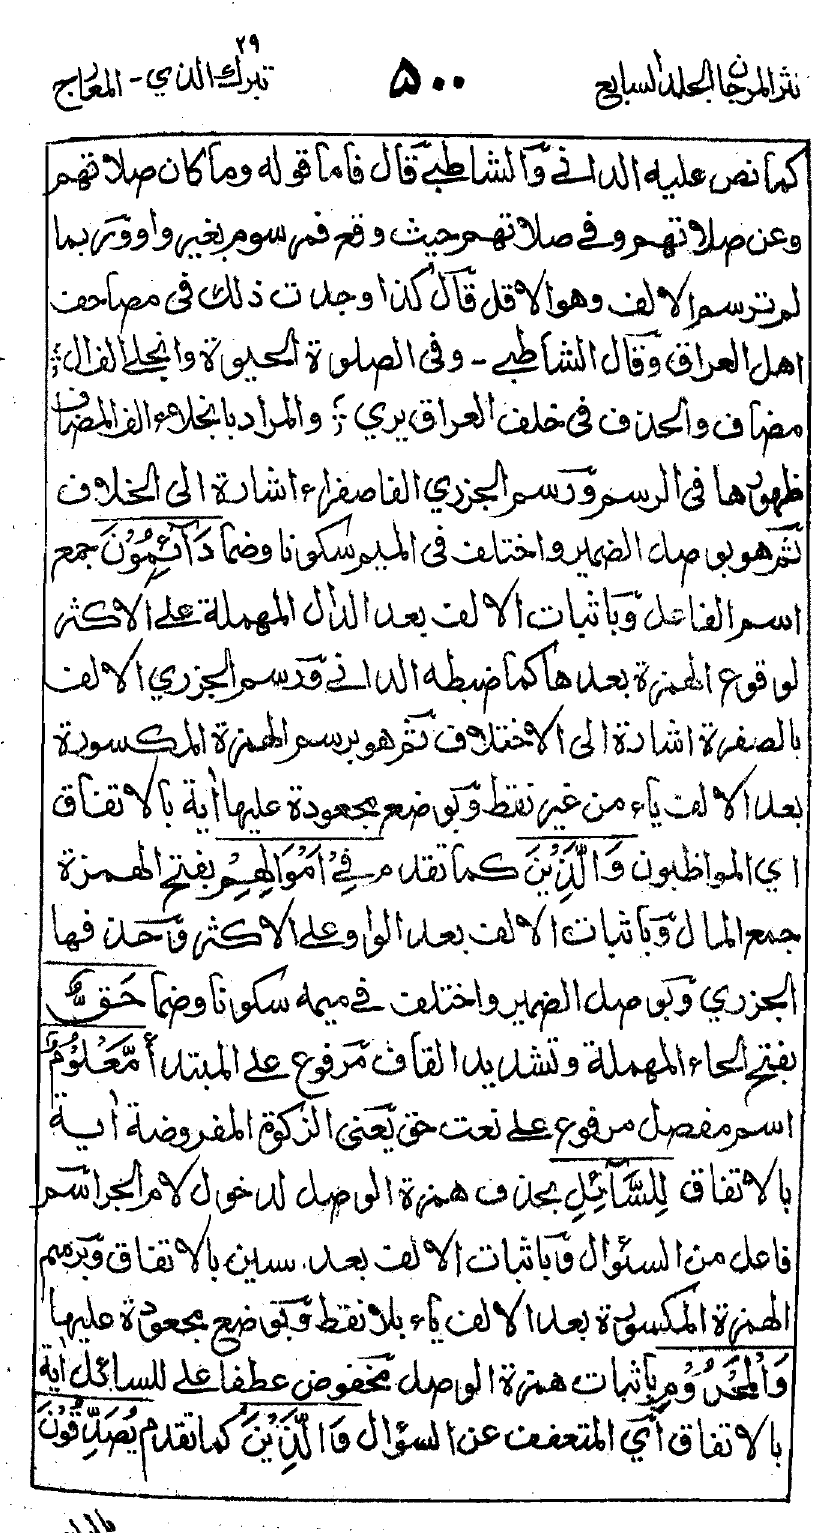 ٢٩
نثر المرجان الجلد السابع ٥٠٠ تبرك الذي - المعارج
كما نص عليه الداني والشاطبي قال فاما قوله وما كان صلاتهم
وعن صلاتهم وفي صلاتهم حيث وقع فمرسوم بغير واو وربما
لم ترسم الالف وهو الاقل قال كذا وجدت ذلك في مصاحف
اهل العراق وقال الشاطبي - وفي الصلوة الحيوة وانجلى الف ال
مضاف والحذف في خلف العراق يري والمراد بانجلاء الف المضاف
ظهورها في الرسم ورسم الجزري الفا صفراء اشارة الى الخلاف
ثم هو بوصل الضمير واختلف في الميم سكونا وضما دَآئِمُوْنَ جمع
اسم الفاعل وباثبات الالف بعد الدال المهملة على الاكثر
لوقوع الهمزة بعدها كما ضبطه الداني ورسم الجزري الالف
بالصفرة اشارة الى الاختلاف ثم هو برسم الهمزة المكسورة
بعد الالف ياء من غير نقط وبوضع مجعودة عليها أية بالاتفاق
اي المواظبون وَالَّذِيْنَ كما تقدم فِيْٓ اَمْوَالِهِمْ بفتح الهمزة
جمع المال وباثبات الالف بعد الواو على الاكثر وحذفها
الجزري وبوصل الضمير واختلف في ميمه سكونا وضما حَقٌّ
بفتح الحاء المهملة وتشديد القاف مرفوع على المبتدأ مَّعْلُوْمٌ
اسم مفصل مرفوع على نعت حق يعني الزكوة المفروضة أية
بالاتفاق لِلسَّآئِلِ بحذف همزة الوصل لدخول لام الجر اسم
فاعل من السئوال وباثبات الالف بعد سين بالاتفاق وبرسم
الهمزة المكسورة بعد الالف ياء بلا نقط وبوضع مجعودة عليها
وَالْمَحْرُوْمِ باثبات همزة الوصل مخفوض عطفا على للسائل أية
بالاتفاق أي المتعفف عن السؤال وَالَّذِيْنَ كما تقدم يُصَدِّقُوْنَ